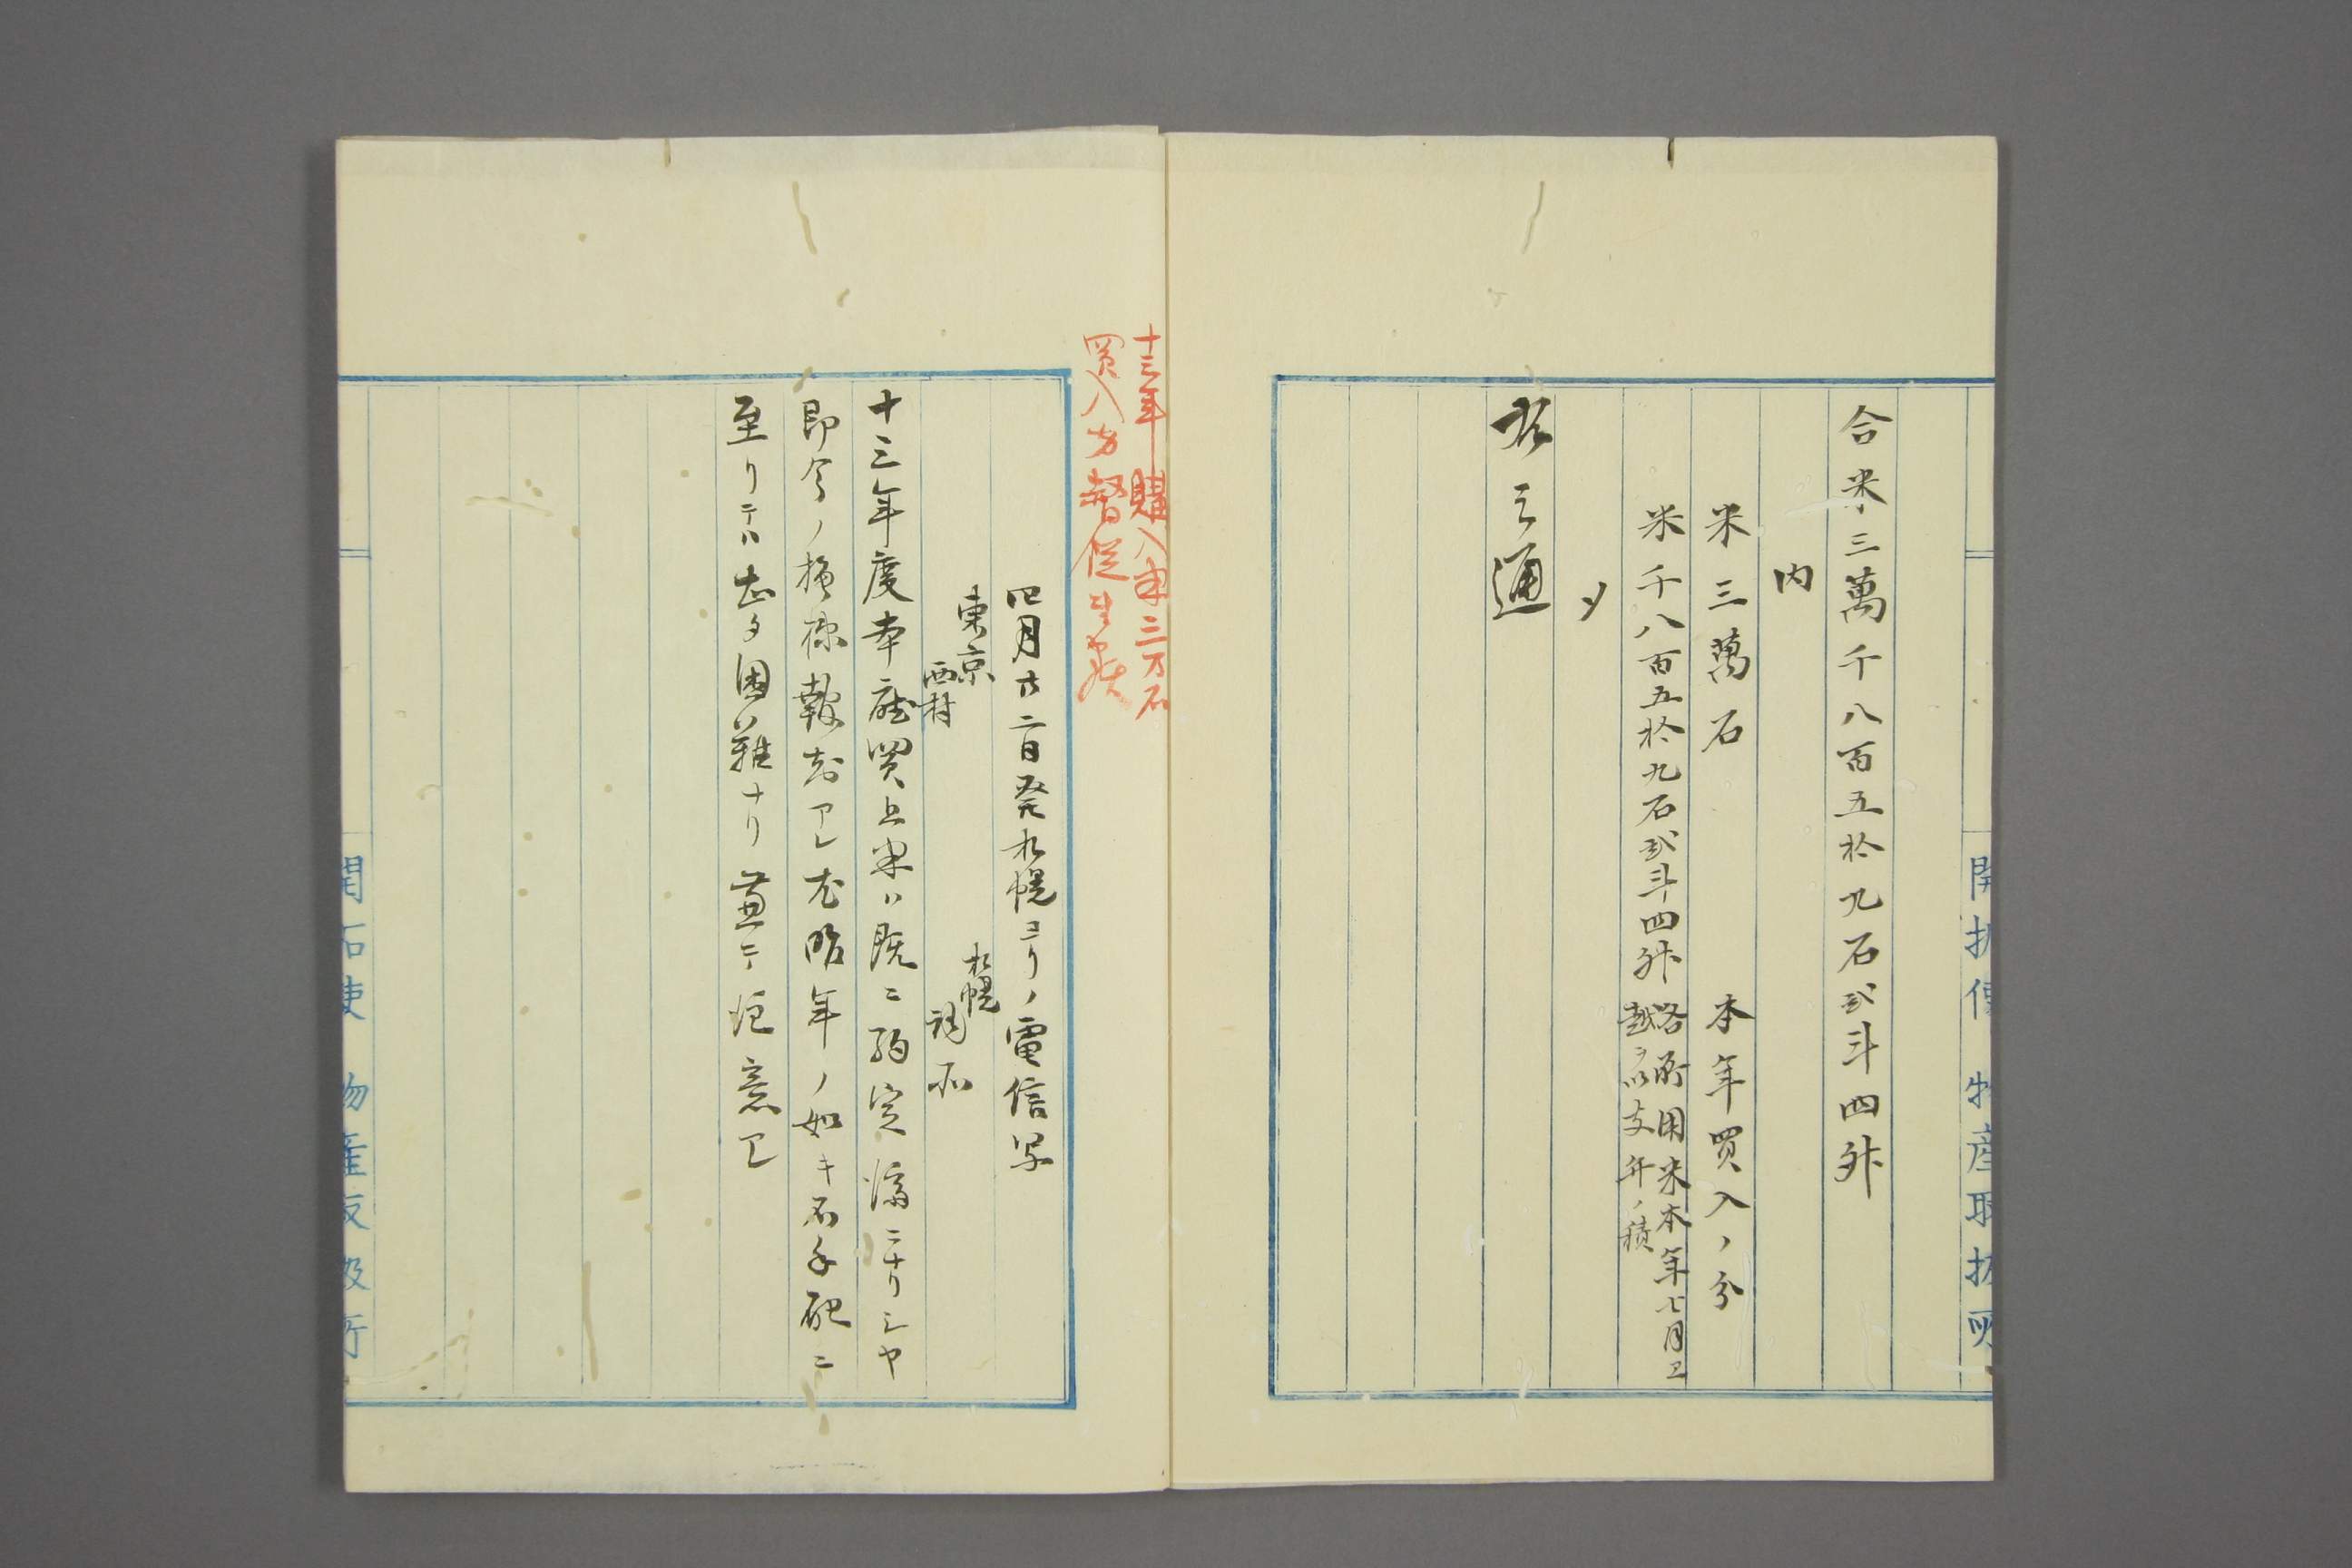 合米三萬千八百五拾九石弐斗四升
内
米三萬石　本年買入ノ分
米千八百五拾九石弐斗四升
各所用米本年七月ヱ
越高支年ノ積
〆
右之通
開拓使 物産取扱所
十三年購入米三万石
買入方督促
四月廿二日発札幌ヨリノ電信写
東京
西村
札幌
調所
十三年度本庁買上米ハ既ニ約定済ニナリシヤ
即今ノ模様報知アレ尤昨年ノ如キ不手配ニ
至リテハ甚タ困難ナリ兼テ注意アレ
開拓使 物産取扱所